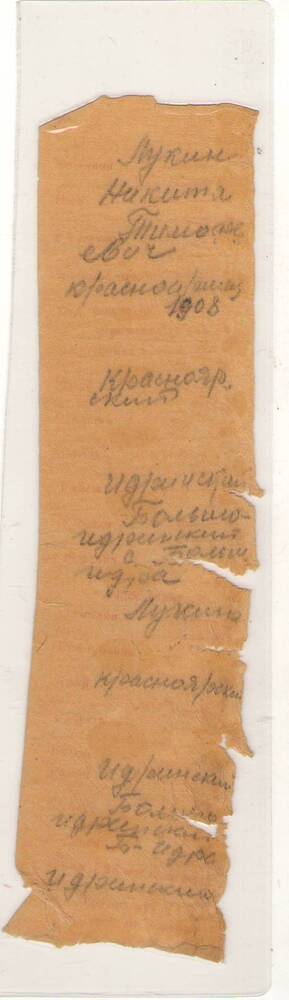 Лукин
Никита
Тимофе
евич
красноармец
1908
Краснояр
ский
Идринский
Больше-
идринский
с Больш
Идра
Лукина
Красноярский
Идринский
Больше
идринский
Б- Идра
Идринский